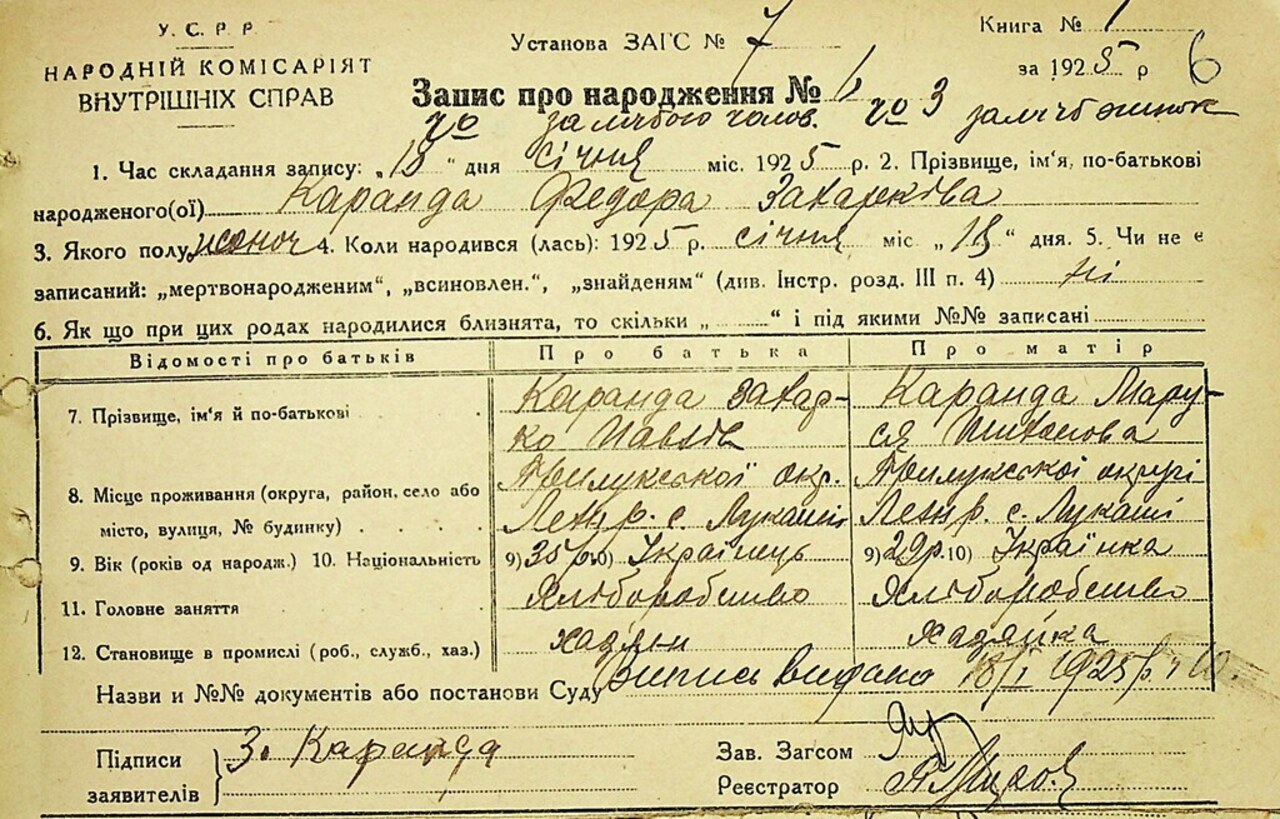 У. С. Р. Р
НАРОДНІЙ КОМІСАРІЯТ
ВНУТРІШНІХ СПРАВ
Установа ЗАГ'С № 7
Книга № 1
за 1925 р 6
Запис про народження №
чо за лічбою чолов. чо 3 за лічб жінок
1. Час складання запису: „18“ дня січня міс. 1925 р. 2. Прізвище, ім'я, по-батькові
народженого(ої) Каранда Федора Захарківа
3. Якого полу жіноч 4. Коли народився (лась): 1925 р. січня міс „13“ дня. 5. Чи не є
записаний: „мертвонародженим“, „всиновлен.“, „знайденям“ (див. Інстр. розд. III п. 4) ні
6. Як що при цих родах народилися близнята, то скільки „ “ і під якими №№ записані
Відомості про батьків Про батька Про матір
7. Прізвище, ім'я й по-батькові Каранда Захар- Каранда Мару-
ко Павлів ся
8. Місце проживання (округа, район, село або Прилукської окр. Прилукської округі
місто, вулиця, № будинку) р. с. Лукаші р. с. Лукаші
9. Вік (років од народж.) 10. Національність 9) 35 р. 10) Українець 9) 29 р. 10) Українка
11. Головне заняття Хліборобство Хліборобство
12. Становище в промислі (роб., служб., хаз.) хадяін Хадяйка
Назви и №№ документів або постанови Суду Випись видано 18/I 1925 р.
Підписи
заявителів
З. Каранда
Зав. Загсом
Реєстратор